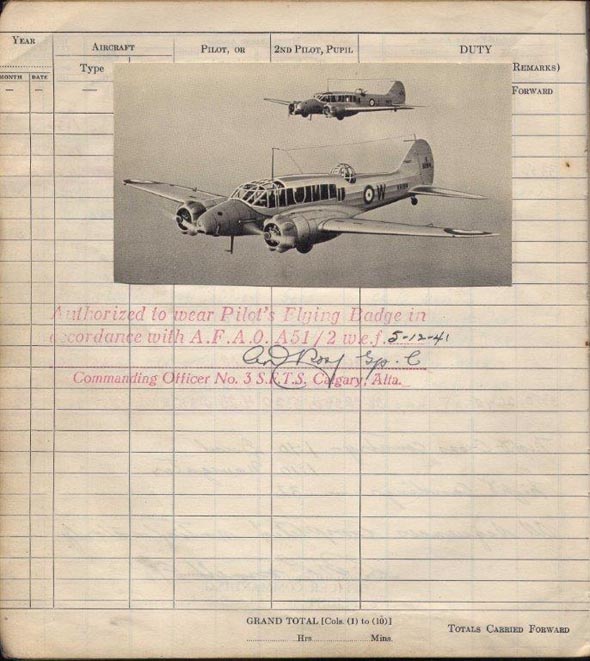 YEAR AIRCRAFT PILOT, OR 2ND PILOT, PUPIL DUTY
MONTH DATE Type REMARKS)
— — — FORWARD
W
Authorized to wear Pilot's Flying Badge in
accordance with A.F.A.O. A51/2 w.e.f. 5-12-41
Gp. C
Commanding Officer No. 3 S.F.T.S. Calgary, Alta.
GRAND TOTAL [Cols. (1) to (10)]
Hrs. Mins.
TOTALS CARRIED FORWARD